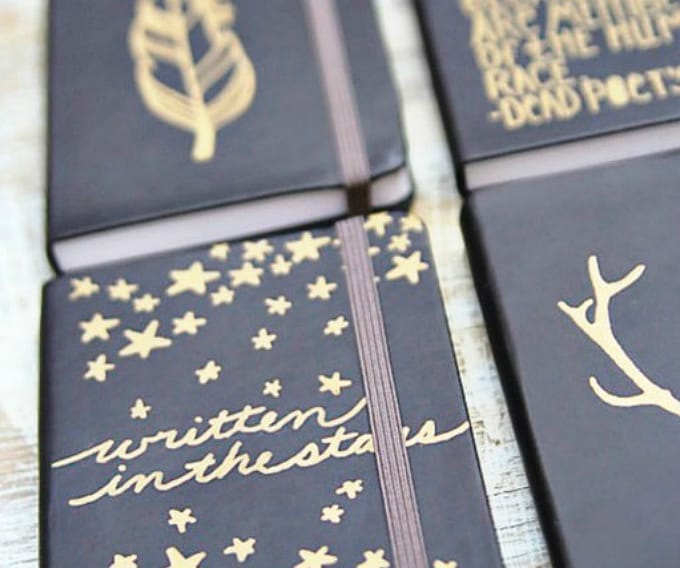 ARE MEMBE
OF THE HUM
RACE
-DEAD POET'S
written
in the stars